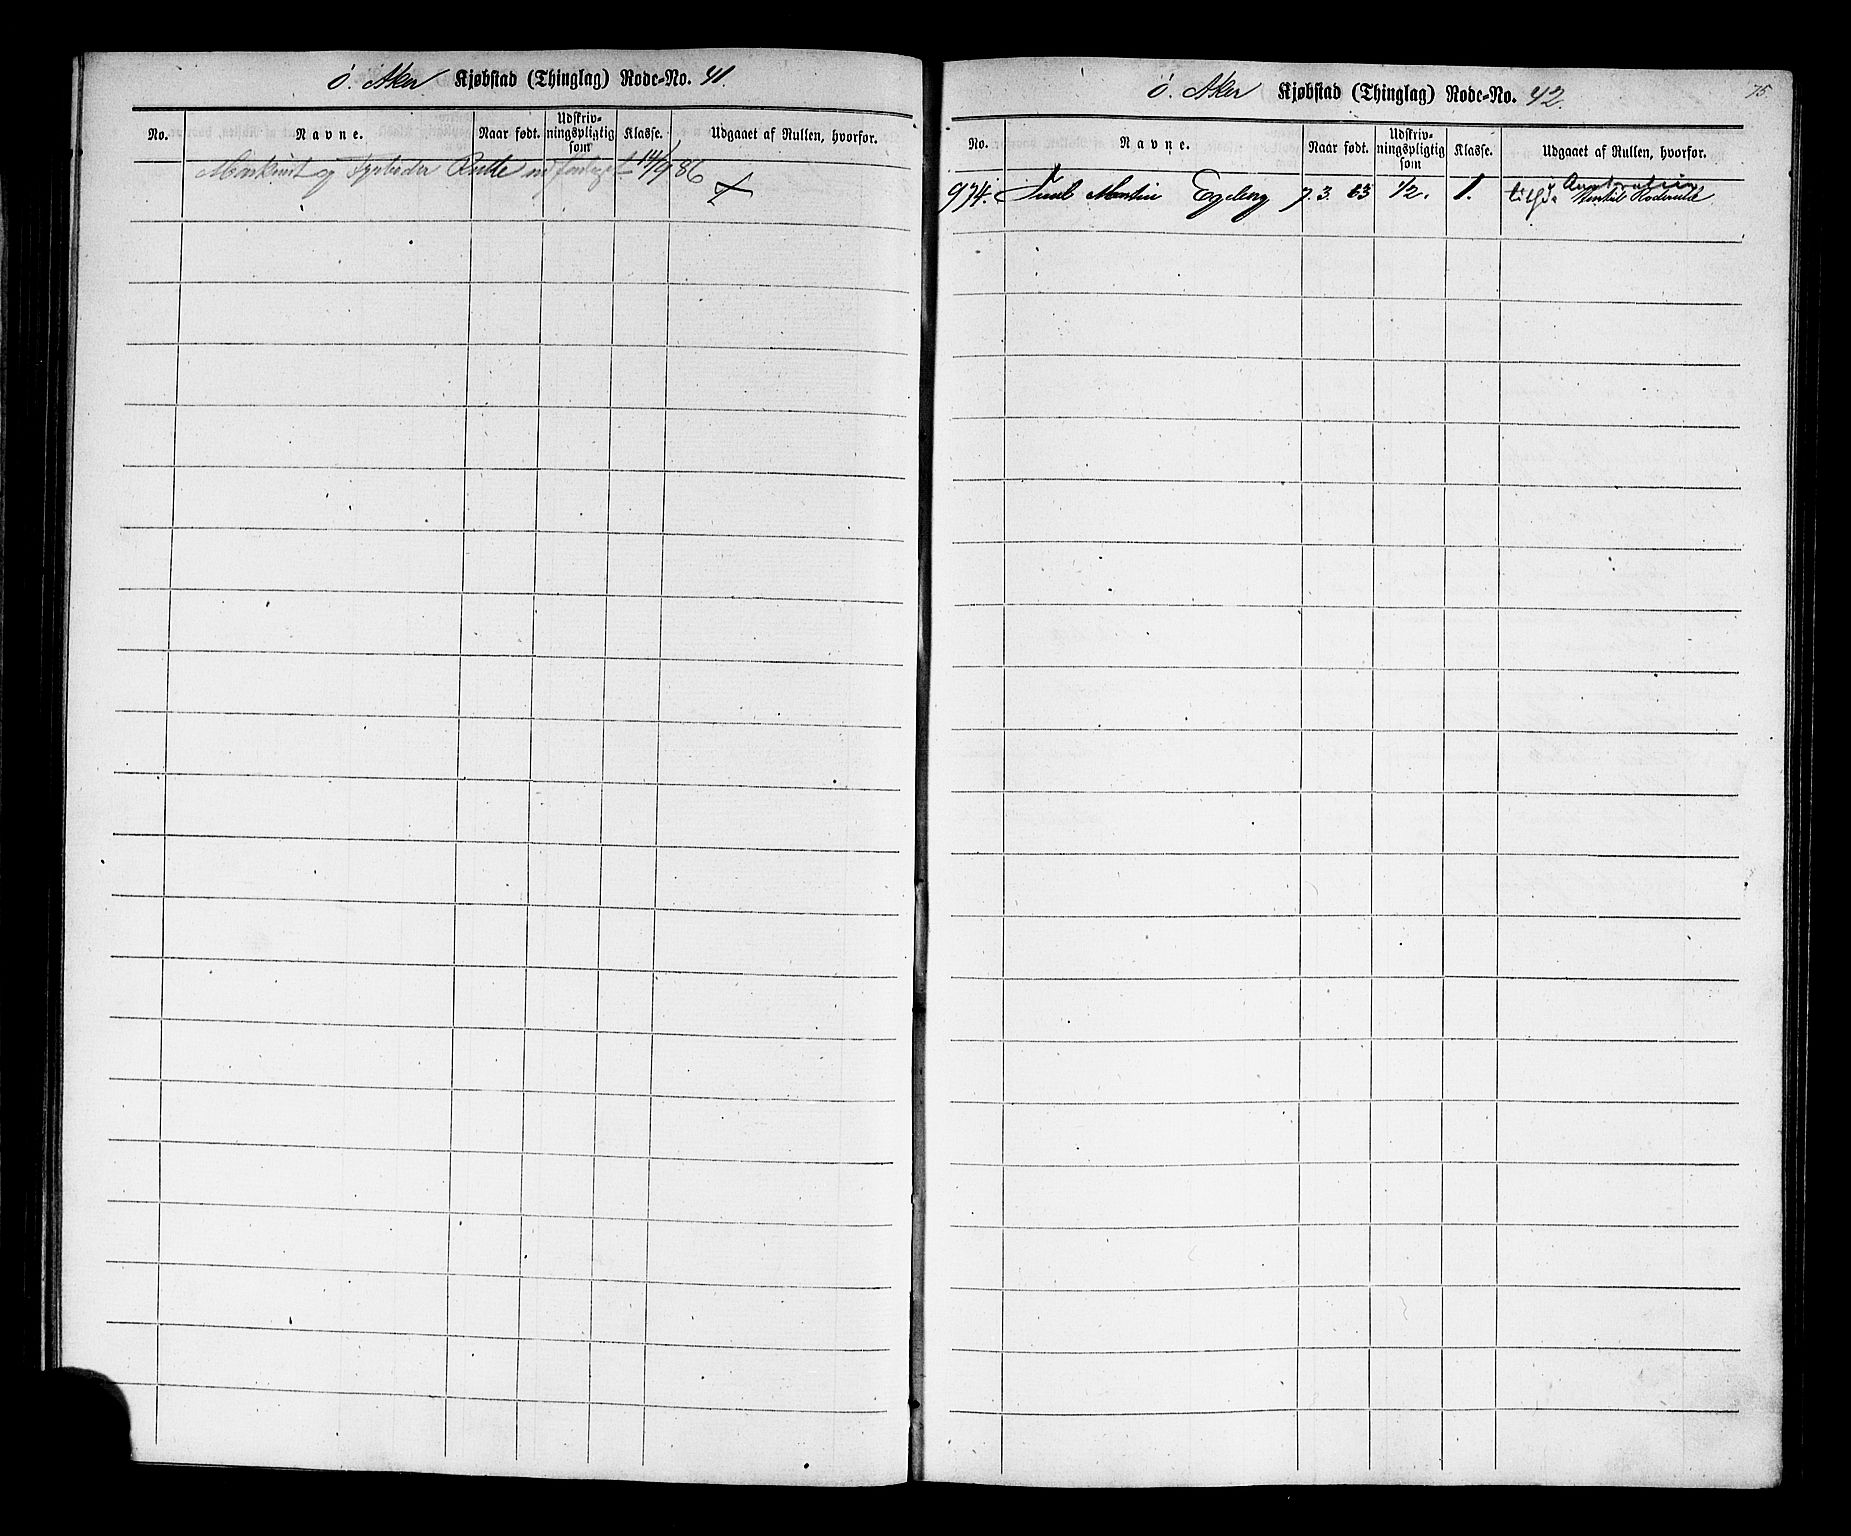 Ø. Aker Kjøbstad (Thinglag) Rode-No. 41.
No. Navne. Naar født. Udskriv-ningspligtig som Klasse. Udgaaet af Rullen, hvorfor.
og Rulle 14/9 86
Ø. Aker Kjøbstad (Thinglag) Rode-No. 42.
75
No. Navne. Naar født. Udskriv-ningspligtig som Klasse. Udgaaet af Rullen, hvorfor.
Australien
974. Martin Egeberg 7.3. 63 1/2. 1.